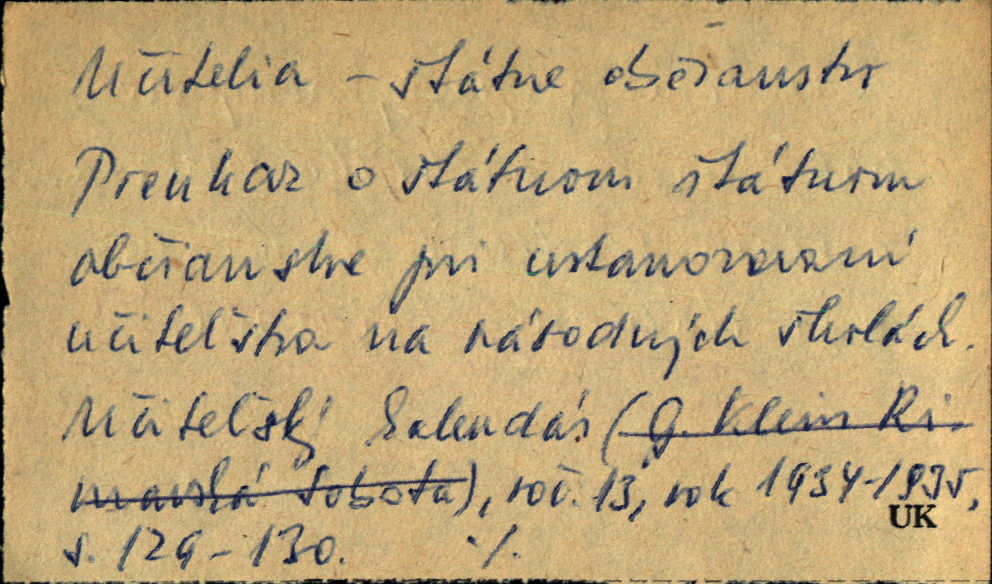 Učitelia – štátne občianstv
Preukaz o štátnom štátnom
občianstve pri ustanovovaní
učiteľstva na národných školách.
Učiteľský kalendár (G. Klein Ri-
mavská Sobota), roč. 13, rok 1934-1935,
s. 129-130. ./.
UK